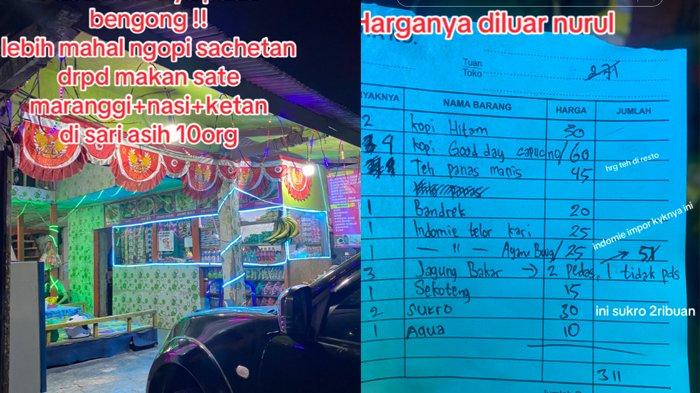 bengong !!
lebih mahal ngopi sachetan
drpd makan sate
maranggi+nasi+ketan
di sari asih 10org
Harganya diluar nurul
Tuan
Toko
NYAKNYA NAMA BARANG HARGA JUMLAH
2 Kopi Hitam 30
4 Kopi Good day capucino 60
Teh panas manis 45 hrg teh di resto
1 Bandrek 20
1 Indomie telor kari 25 indomie impor kyknya ini
1 — 11 — Ayam Bwg 25
3 Jagung Bakar → 2 Pedas, 1 tidak pds
1 Sekoteng 15
2 SUKRO 30 ini sukro 2ribuan
1 Aqua 10
311